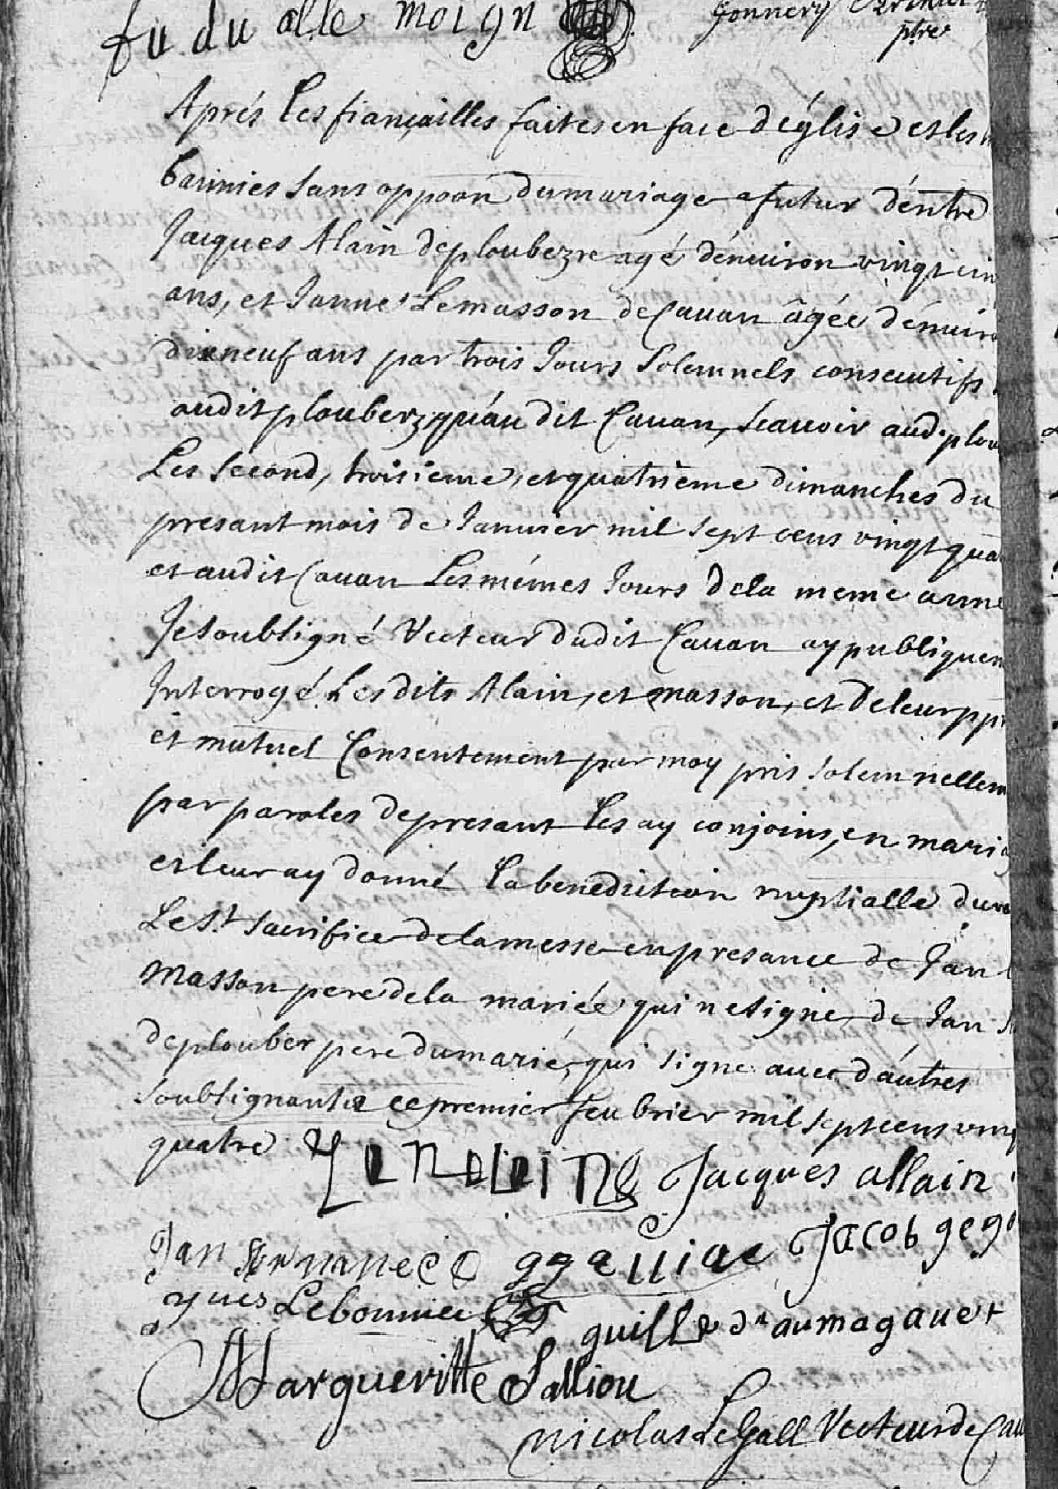 fu du alle moign
ptre
Aprés les fiançailles faites en face d'église et les
bannies sans oppoõn du mariage a futur d'entre
Jacques Alain de ploubezre agé d'enuiron vingt cin
ans, et Janne Le masson de Cauan âgée d'enuir
dixneuf ans par trois Jours solemnels consecutifs
audit plouber qu'au dit Cauan, scauoir aud. plou
Les second, troisieme, et quatrieme dimanches du
presant mois de Januier mil sept cens vingt qua
et audit Cauan Les mémes Jours de la meme anne
Je soubsigné Recteur dudit Cauan ay publiquem
Interrogé Lesdits Alain, et masson, et de leur
et mutuel Consentement par moy pris solemnellem
par paroles de presant les ay conjoins, en maria
et leur ay donné la benediction nuptialle dura
Le St. sacrifice de la messe en presance de Jan
masson pere de la mariée qui ne signe de Jan
de plouber pere du marié, qui signe auec d'autres
soubsignants ce premier feubrier mil sept cens ving
quatre Jacques allain
Jan Jacob gego
yues Lebonniec guille
Margueritte Salliou
nicolas Le Gall Recteur de Cau